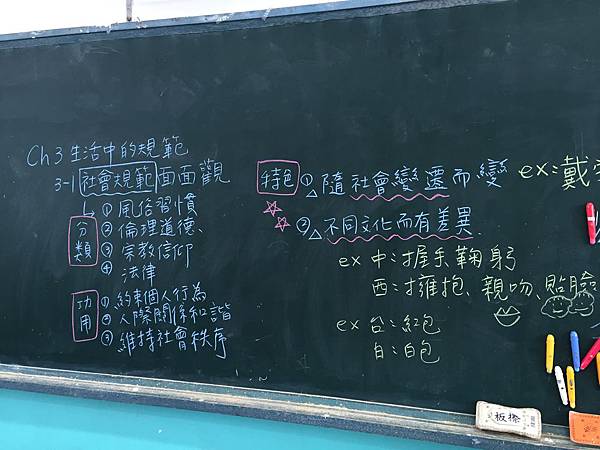 Ch3 生活中的規範
3-1 社會規範面面觀
分類
① 風俗習慣
② 倫理道德、
③ 宗教信仰
④ 法律
功用
① 約束個人行為
② 人際關係和諧
③ 維持社會秩序
特色 ① 隨社會變遷而變 ex:戴
② 不同文化而有差異.
ex 中:握手鞠躬
西:擁抱、親吻、貼臉
ex 台:紅包
日:白包
板擦